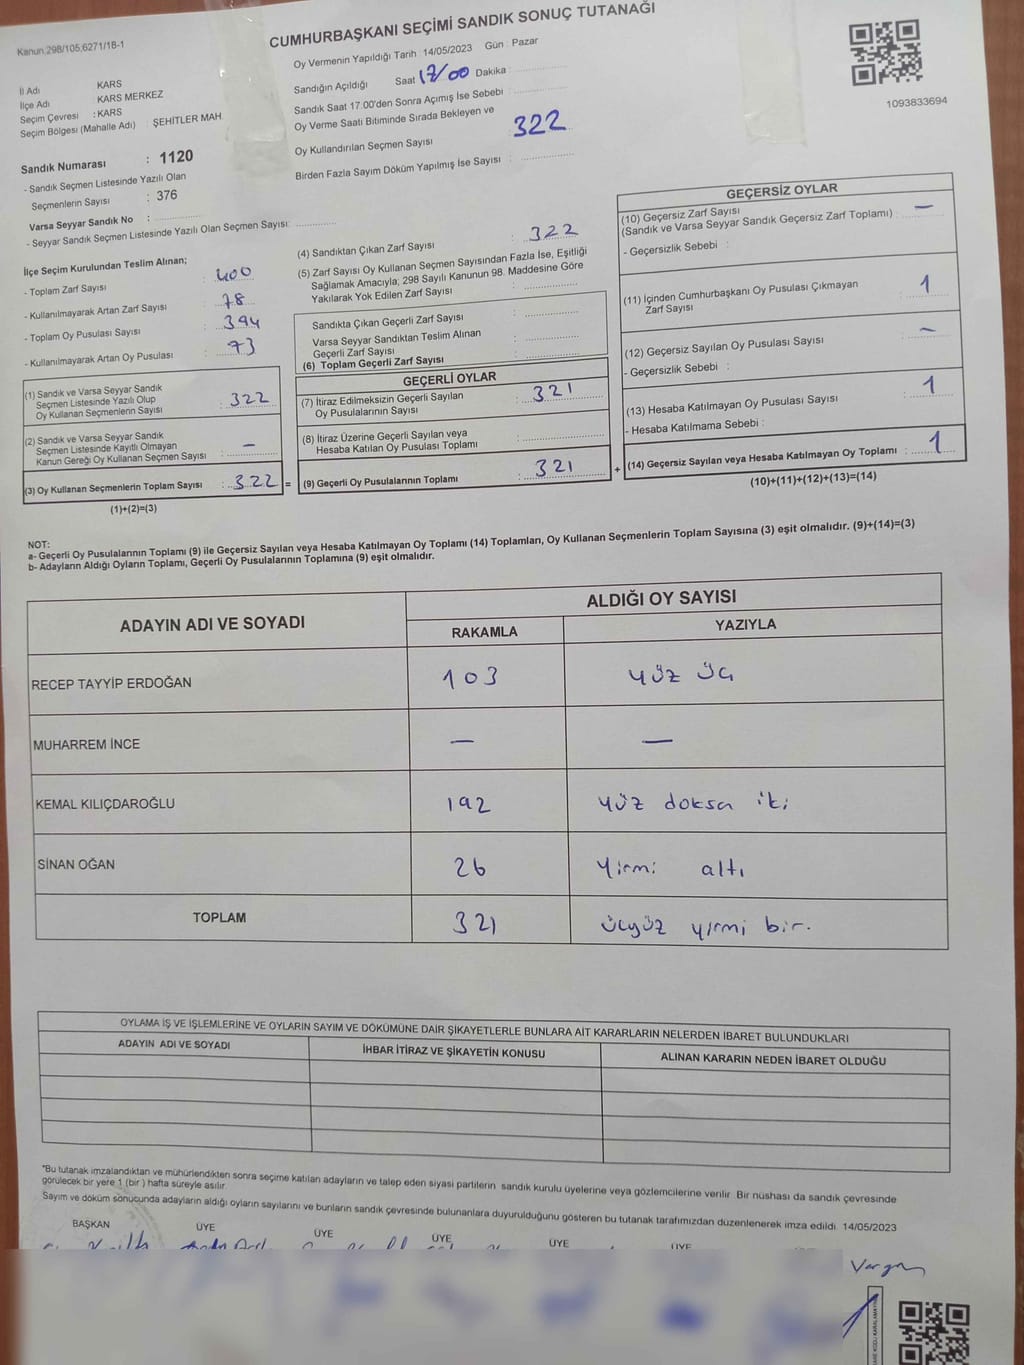 Kanun:298/105,6271/18-1
CUMHURBAŞKANI SEÇİMİ SANDIK SONUÇ TUTANAĞI
Oy Vermenin Yapıldığı Tarih 14/05/2023 Gün : Pazar
Sandığın Açıldığı Saat 17/00 Dakika :
Sandık Saat 17.00'den Sonra Açımış İse Sebebi :
Oy Verme Saati Bitiminde Sırada Bekleyen ve
Oy Kullandırılan Seçmen Sayısı 322
Birden Fazla Sayım Döküm Yapılmış İse Sayısı :
1093833694
İl Adı KARS
İlçe Adı KARS MERKEZ
Seçim Çevresi : KARS
Seçim Bölgesi (Mahalle Adı) : ŞEHİTLER MAH.
Sandık Numarası : 1120
- Sandık Seçmen Listesinde Yazılı Olan
Seçmenlerin Sayısı : 376
Varsa Seyyar Sandık No :
- Seyyar Sandık Seçmen Listesinde Yazılı Olan Seçmen Sayısı:
İlçe Seçim Kurulundan Teslim Alınan;
- Toplam Zarf Sayısı : 400
- Kullanılmayarak Artan Zarf Sayısı : 78
- Toplam Oy Pusulası Sayısı : 394
- Kullanılmayarak Artan Oy Pusulası : 73
(1) Sandık ve Varsa Seyyar Sandık
Seçmen Listesinde Yazılı Olup
Oy Kullanan Seçmenlerin Sayısı : 322
(2) Sandık ve Varsa Seyyar Sandık
Seçmen Listesinde Kayıtlı Olmayan
Kanun Gereği Oy Kullanan Seçmen Sayısı : —
(3) Oy Kullanan Seçmenlerin Toplam Sayısı : 322 =
(1)+(2)=(3)
(4) Sandıktan Çıkan Zarf Sayısı : 322
(5) Zarf Sayısı Oy Kullanan Seçmen Sayısından Fazla İse, Eşitliği
Sağlamak Amacıyla; 298 Sayılı Kanunun 98. Maddesine Göre
Yakılarak Yok Edilen Zarf Sayısı :
Sandıkta Çıkan Geçerli Zarf Sayısı :
Varsa Seyyar Sandıktan Teslim Alınan
Geçerli Zarf Sayısı :
(6) Toplam Geçerli Zarf Sayısı :
GEÇERLİ OYLAR
(7) İtiraz Edilmeksizin Geçerli Sayılan
Oy Pusulalarının Sayısı : 321
(8) İtiraz Üzerine Geçerli Sayılan veya
Hesaba Katılan Oy Pusulası Toplamı :
(9) Geçerli Oy Pusulalarının Toplamı : 321 +
GEÇERSİZ OYLAR
(10) Geçersiz Zarf Sayısı
(Sandık ve Varsa Seyyar Sandık Geçersiz Zarf Toplamı) : —
- Geçersizlik Sebebi :
(11) İçinden Cumhurbaşkanı Oy Pusulası Çıkmayan
Zarf Sayısı : 1
(12) Geçersiz Sayılan Oy Pusulası Sayısı : —
- Geçersizlik Sebebi :
(13) Hesaba Katılmayan Oy Pusulası Sayısı : 1
- Hesaba Katılmama Sebebi :
(14) Geçersiz Sayılan veya Hesaba Katılmayan Oy Toplamı : 1
(10)+(11)+(12)+(13)=(14)
NOT:
a- Geçerli Oy Pusulalarının Toplamı (9) ile Geçersiz Sayılan veya Hesaba Katılmayan Oy Toplamı (14) Toplamları, Oy Kullanan Seçmenlerin Toplam Sayısına (3) eşit olmalıdır. (9)+(14)=(3)
b- Adayların Aldığı Oyların Toplamı, Geçerli Oy Pusulalarının Toplamına (9) eşit olmalıdır.
ADAYIN ADI VE SOYADI
ALDIĞI OY SAYISI
RAKAMLA YAZIYLA
RECEP TAYYİP ERDOĞAN 103 yüz üç
MUHARREM İNCE — —
KEMAL KILIÇDAROĞLU 192 yüz doksa iki
SİNAN OĞAN 26 yirmi altı
TOPLAM 321 üçyüz yirmi bir.
OYLAMA İŞ VE İŞLEMLERİNE VE OYLARIN SAYIM VE DÖKÜMÜNE DAİR ŞİKAYETLERLE BUNLARA AİT KARARLARIN NELERDEN İBARET BULUNDUKLARI
ADAYIN ADI VE SOYADI İHBAR İTİRAZ VE ŞİKAYETİN KONUSU ALINAN KARARIN NEDEN İBARET OLDUĞU
*Bu tutanak imzalandıktan ve mühürlendikten sonra seçime katılan adayların ve talep eden siyasi partilerin sandık kurulu üyelerine veya gözlemcilerine verilir. Bir nüshası da sandık çevresinde
görülecek bir yere 1 (bir ) hafta süreyle asılır
Sayım ve döküm sonucunda adayların aldığı oyların sayılarını ve bunların sandık çevresinde bulunanlara duyurulduğunu gösteren bu tutanak tarafımızdan düzenlenerek imza edildi. 14/05/2023
BAŞKAN ÜYE ÜYE ÜYE ÜYE ÜYE